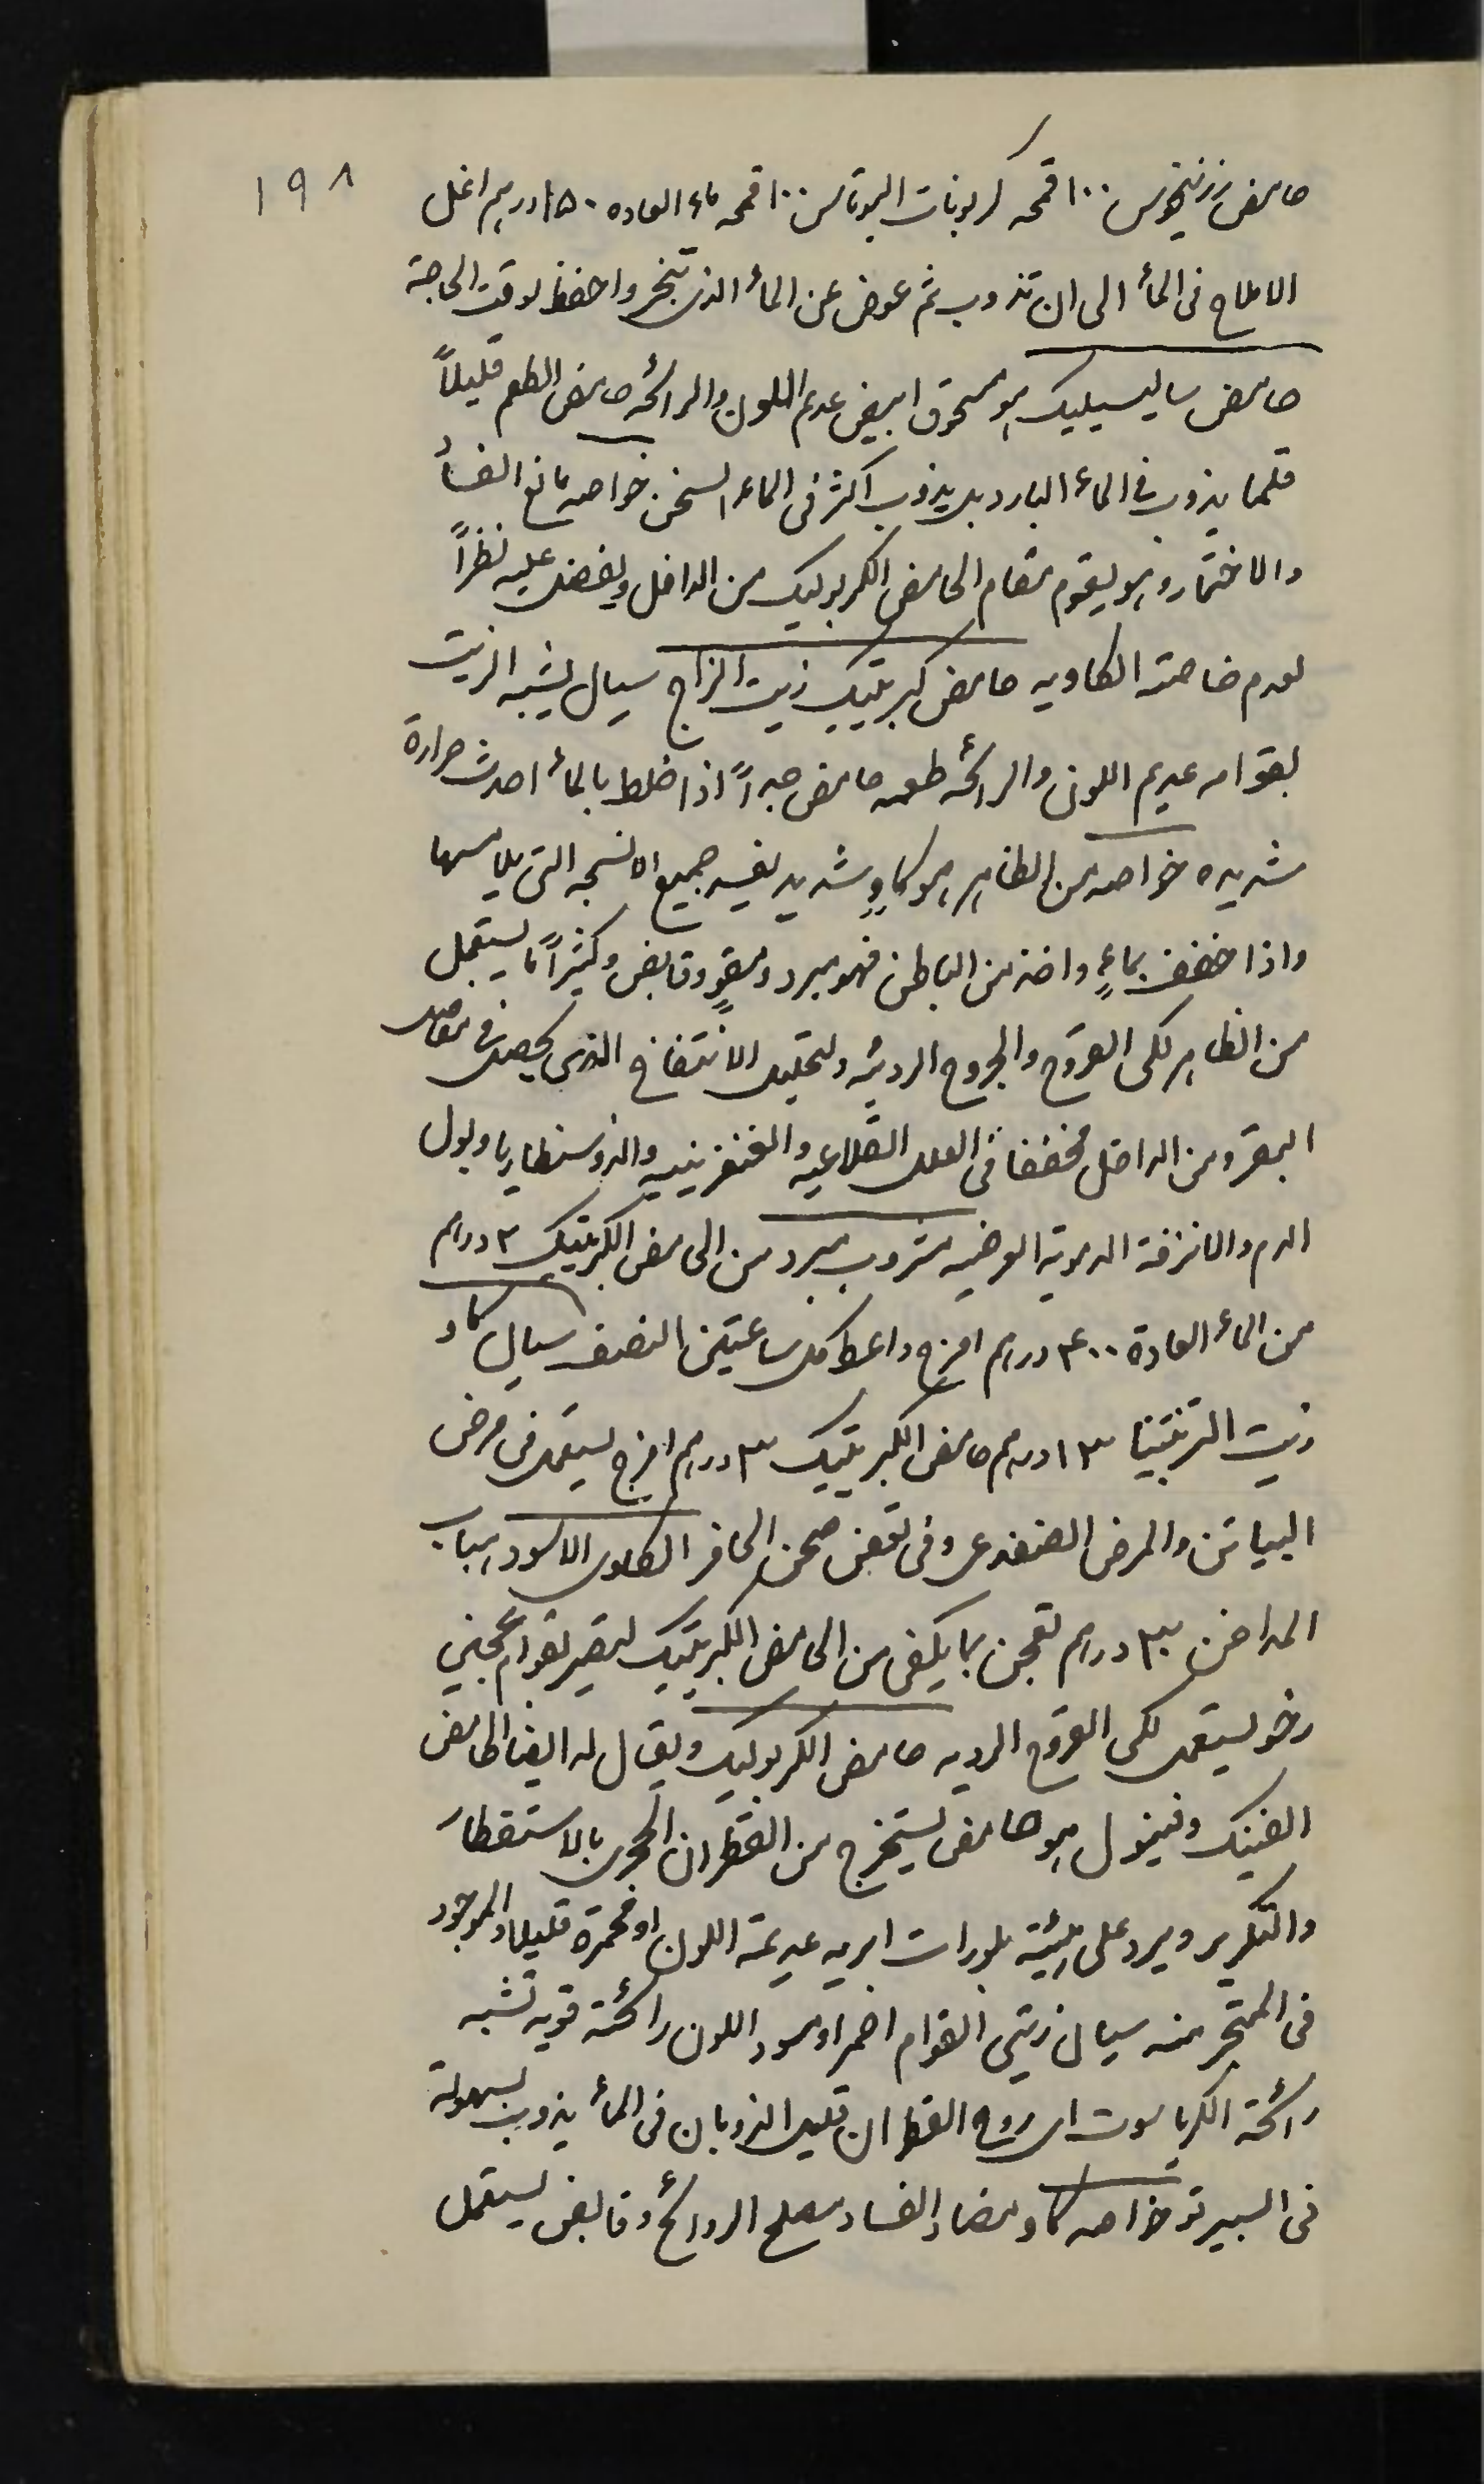 ١٩٨
حامض زرنيخوس ١٠٠ قمحه كربونات البوتاس ١٠٠ قمحه ماء العاده ١٥٠ درهم اغل
الاملاح فى المأ الى ان تذوب ثم عوض عن المأ الذى تبخر واحفظ لوقت الحاجة
حامض ساليسيليك هو مسحوق ابيض عديم اللون والرائحه حامض الطعم قليلاً
قلما يذوب فى الماء البارد بل يذوب اكثر فى الماء السخن خواصه مانع الفسأ
والاختمار وهو يقوم مقام الحامض الكربوليك من الداخل ويفضل عليه نظراً
لعدم خاصته الكاويه حامض كبريتيك زيت الزاج سيال يشبه الزيت
بقوامه عديم اللون والرائحه طعمه حامض جداً اذا خلط بالمأ احدث حرارة
شديده خواصه من الظاهر هو كاوٍ شديد يفسد جميع الانسجه التى يلامسها
واذا خفف بماءٍ واخذ من الباطن فهو مبرد ومقوٍ وقابض وكثيراً ما يستعمل
من الظاهر لكى القروح والجروح الرديئه ولتحليل الانتفاخ الذى يحصل فى مفاصل
البقر ومن الداخل مخففا فى العلل القلاعيه والغنغرينيه والدوسنطاريا وبول
الدم والانزفة الدمويه العرضيه مشروب مبرد من الحامض الكبريتيك ٣ دراهم
من الماء العادة ٤٠٠ درهم امزج واعط كل ساعتين النصف سيال كاو
زيت التربنتينا ١٣ درهم حامض الكبريتيك ٣ درهم امزج يستعمل فى مرض
البياتن والمرض الضفدعى وفى تعفن صحن الحافر الكاوى الاسود هباب
المداخن ٣٠ درهم تعجن بما يكفى من الحامض الكبريتيك ليصير بقوام عجينى
رخو يستعمل لكى القروح الرديه حامض الكربوليك ويقال له ايضا الحامض
الفينك وفينول هو حامض يستخرج من القطران الحجرى بالاستقطار
والتكرير ويرد على هيئية بلورات ابريه عديمة اللون او محمرة قليلا والموجود
فى المتجر منه سيال زيتى القوام احمر او مسود اللون رائحته قويه تشبه
رائحة الكرياسوت اى روح القطران قليل الذوبان فى المأ يذوب بسهولة
فى السبيرتو خواصه كاو مضاد الفساد مصلح الروائح وقابض يستعمل